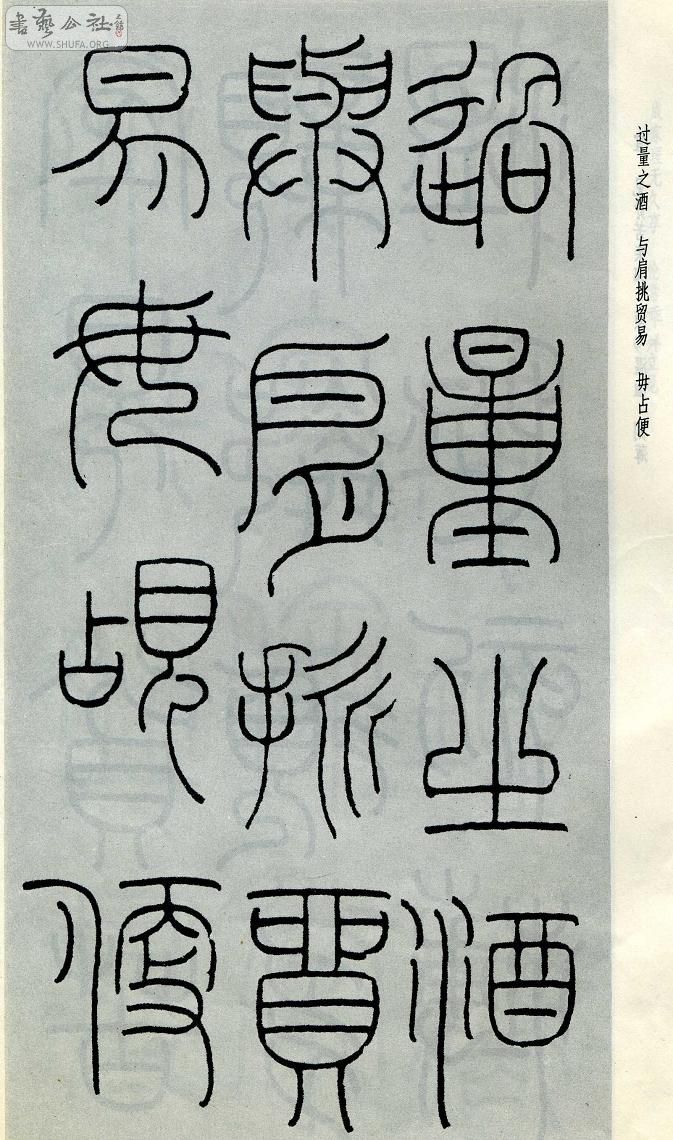 過量之酒
與肩挑貿
易毋覘便
过量之酒 与肩挑贸易 毋占便
書藝公社
WWW.SHUFA.ORG